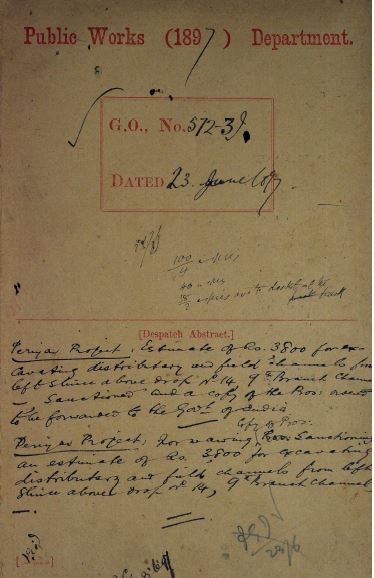 Public Works (1897) Department.
G.O., No. 572-3 I.
DATED 23. June 1897.
100
4
40
[Despatch Abstract.]
Periyar Project, Estimate of Rs. 3800 for ex-
cavating distributary and field channels from
left Sluice above drop No. 14, 9th Branch Channel
— Sanctioned and a copy of the Pros: 
to be forwarded to the Govt. of India
Copy of Pros:
Periyar Project; Forwarding Sanctioning
an estimate of Rs. 3800 for excavating
distributary and field channels from left
Sluice above drop No. 14, 9th Branch Channel
—.
23/6